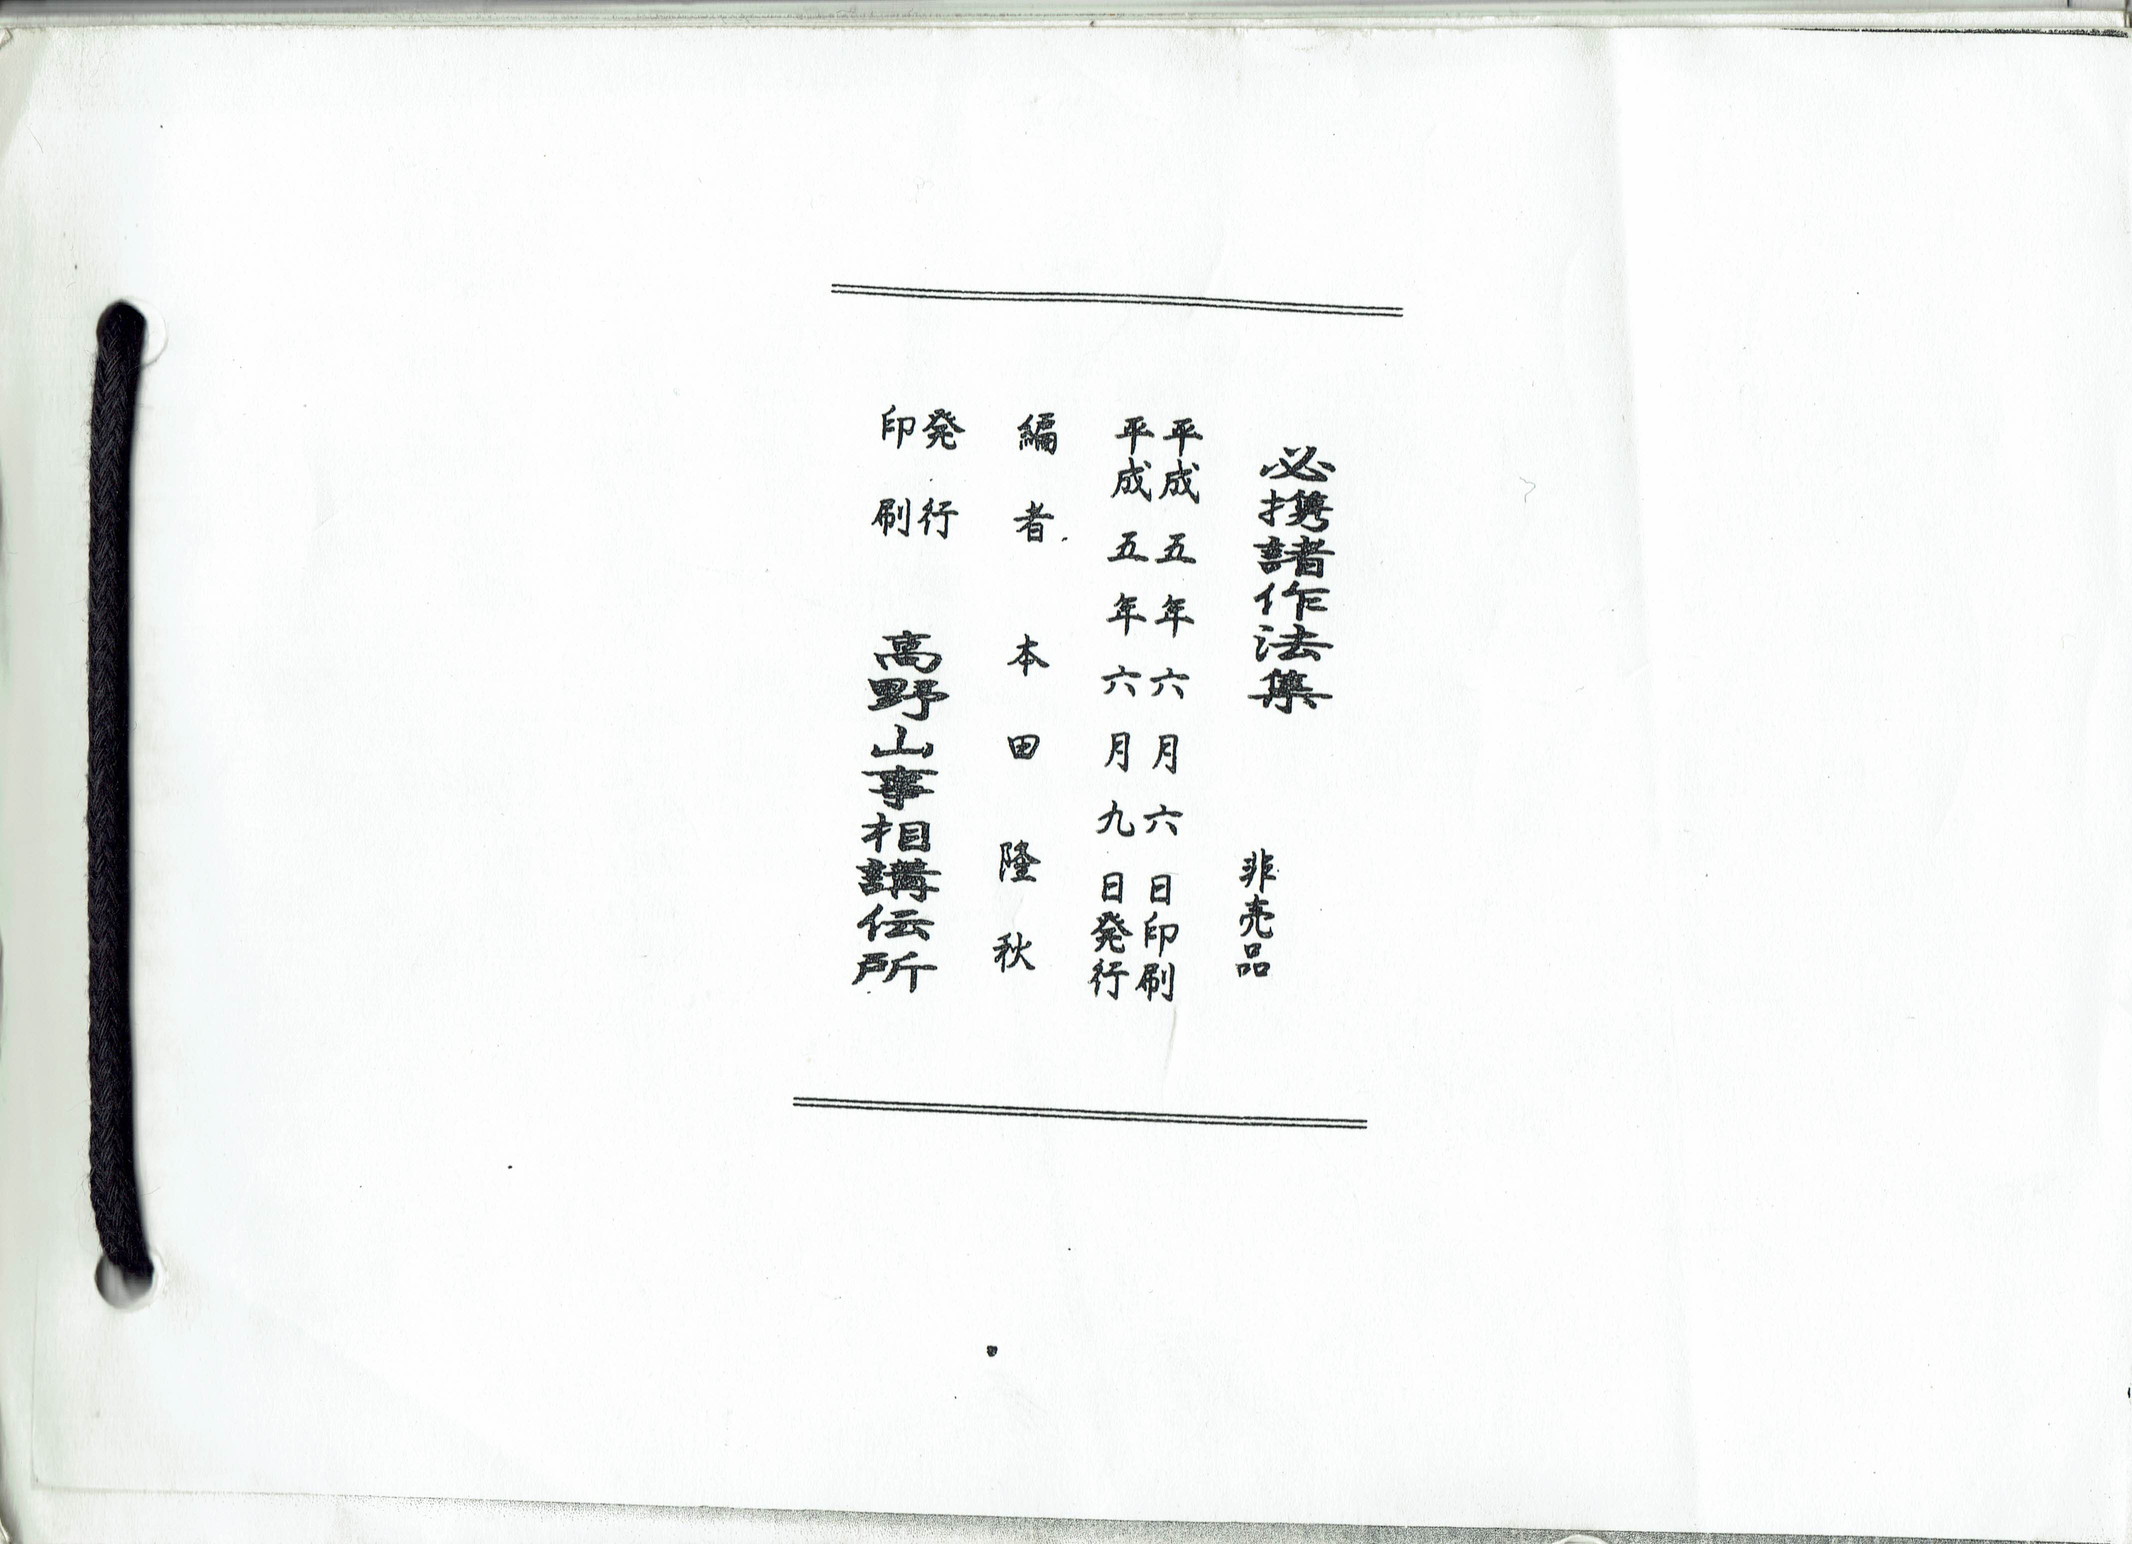 必携諸作法集
非売品
平成五年六月六日印刷
平成五年六月九日発行
編者 本田隆秋
発行
印刷
高野山事相講伝所